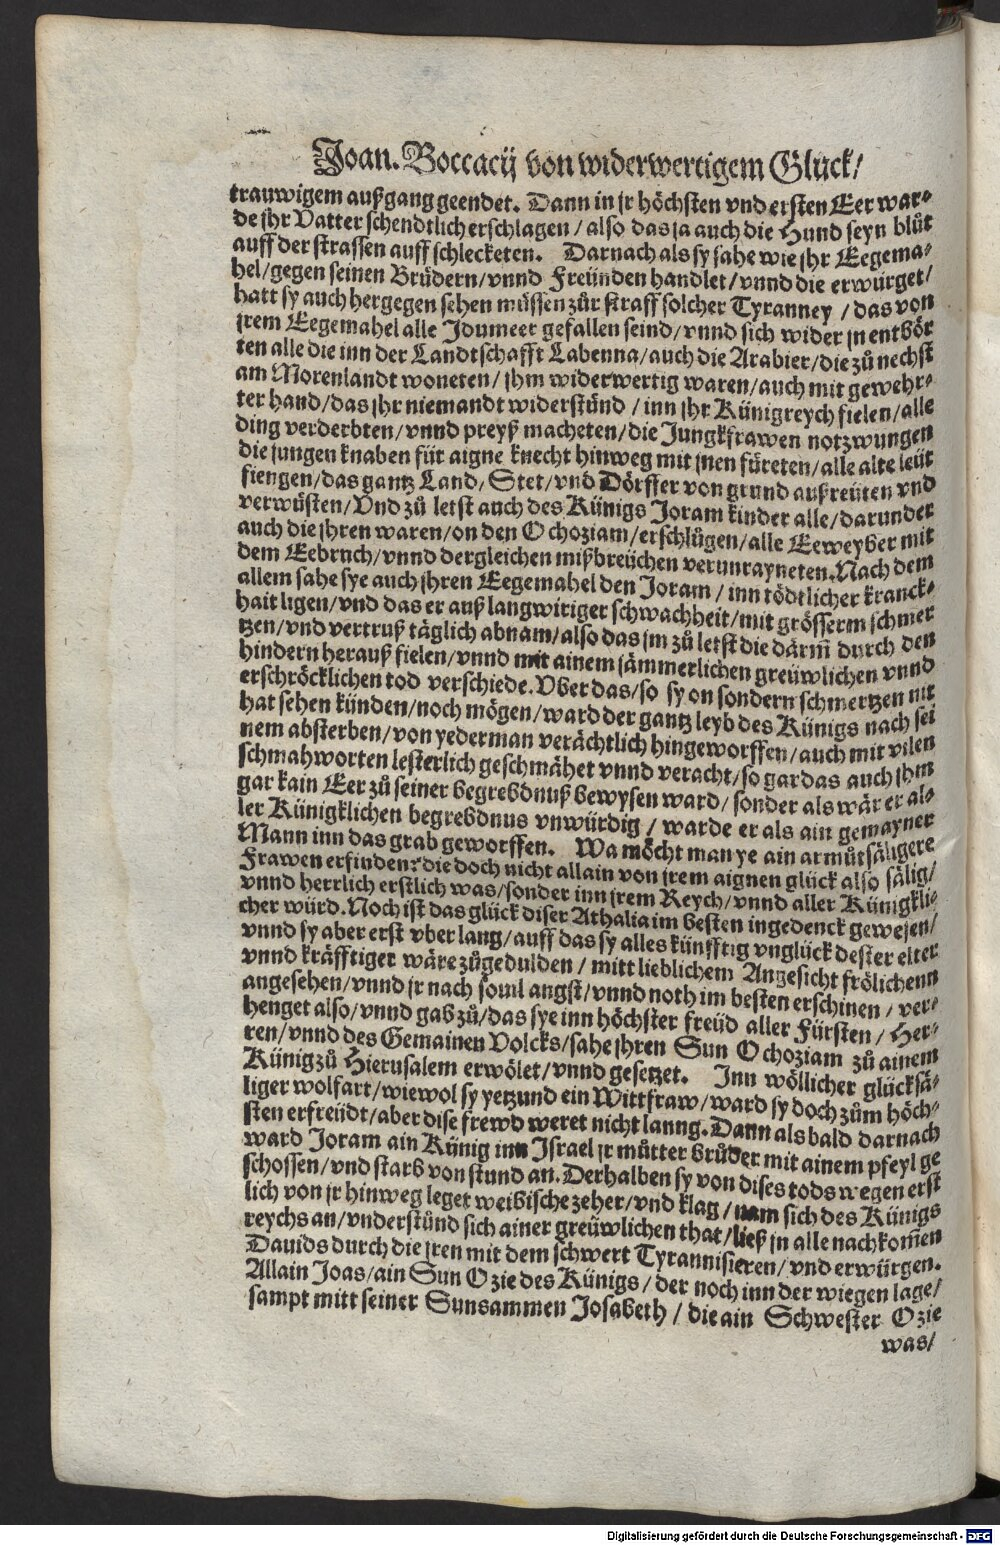 Joan. Boccacij von widerwertigem Glück/
trauwigem außgang geendet. Dann in jr höchsten vnd ersten Eer war⸗
de jhr Vatter schendtlich erschlagen/ also das ja auch die Hund seyn blůt
auff der strassen auff schlecketen. Darnach als sy sahe wie jhr Eegema⸗
hel/ gegen seinen Brüdern/ vnnd Freünden handlet/ vnnd die erwürget/
hatt sy auch hergegen sehen müssen zůr straff solcher Tyranney/ das von
jrem Eegemahel alle Jdumeer gefallen seind/ vnnd sich wider jn entbör
ten alle die inn der Landtschafft Labenna/ auch die Arabier/ die zů nechst
am Morenlandt woneten/ jhm widerwertig waren/ auch mit gewehr⸗
ter hand/ das jhr niemandt widerstůnd/ inn jhr Künigreych fielen/ alle
ding verderbten/ vnnd preyß macheten/ die Jungkfrawen notzwungen
die jungen knaben für aigne knecht hinweg mit jnen füreten/ alle alte leüt
fiengen/ das gantz Land, Stet/ vnd Dörffer von grund außreüten vnd
verwüsten/ Vnd zů letst auch des Künigs Joram kinder alle/ darunder
auch die jhren waren/ on den Ochoziam/ erschlůgen/ alle Eeweyber mit
dem Eebruch/ vnnd dergleichen mißbreüchen verunrayneten. Nach dem
allem sahe sye auch jhren Eegemahel den Joram/ inn tödtlicher kranck⸗
hait ligen/ vnd das er auß langwiriger schwachheit/ mit grösserm schmer
tzen/ vnd vertruß täglich abnam/ also das jm zů letst die därm̃ durch den
hindern herauß fielen/ vnnd mit ainem jämmerlichen greüwlichen vnnd
erschröcklichen tod verschiede. Vber das/ so sy on sondern schmertzen nit
hat sehen künden/ noch mögen/ ward der gantz leyb des Künigs nach sei
nem absterben/ von yederman verächtlich hingeworffen/ auch mit vilen
schmahworten lesterlich geschmähet vnnd veracht/ so gar das auch jhm
gar kain Eer zů seiner begrebdnuß bewysen ward/ sonder als wär er al⸗
ler Künigklichen begrebdnus vnwürdig/ warde er als ain gemayner
Mann inn das grab geworffen. Wa möcht man ye ain armůtsäligere
Frawen erfinden? die doch nicht allain von jrem aignen glück also sälig/
vnnd herrlich erstlich was/ sonder inn jrem Reych/ vnnd aller Künigkli⸗
cher würd. Noch ist das glück diser Athalia im besten ingedenck gewesen/
vnnd sy aber erst vber lang/ auff das sy alles künfftig vnglück dester elter
vnnd kräfftiger wäre zůgedulden/ mitt lieblichem Angesicht frölichenn
angesehen/ vnnd jr nach souil angst/ vnnd noth im besten erschinen/ ver⸗
henget also/ vnnd gab zů/ das sye inn höchster freüd aller Fürsten/ Her⸗
ren/ vnnd des Gemainen Volcks/ sahe jhren Sun Ochoziam zů ainem
Künig zů Hierusalem erwölet/ vnnd gesetzet. Inn wöllicher glücksä⸗
liger wolfart/ wiewol sy yetzund ein Wittfraw/ ward sy doch zům höch⸗
sten erfreüdt/ aber dise frewd weret nicht lanng. Dann als bald darnach
ward Joram ain Künig inn Israel jr můtter brůder mit ainem pfeyl ge
schossen/ vnd starb von stund an. Derhalben sy von dises tods wegen erst
lich von jr hinweg leget weibische zeher/ vnd klag/ nam sich des Künigs
reychs an/ vnderstůnd sich ainer greüwlichen that/ ließ jn alle nachkom̃en
Dauids durch die jren mit dem schwert Tyrannisieren/ vnd erwürgen.
Allain Joas/ ain Sun Ozie des Künigs/ der noch inn der wiegen lage/
sampt mitt seiner Sunsammen Josabeth/ die ain Schwester Ozie
was/
Digitalisierung gefördert durch die Deutsche Forschungsgemeinschaft - DFG